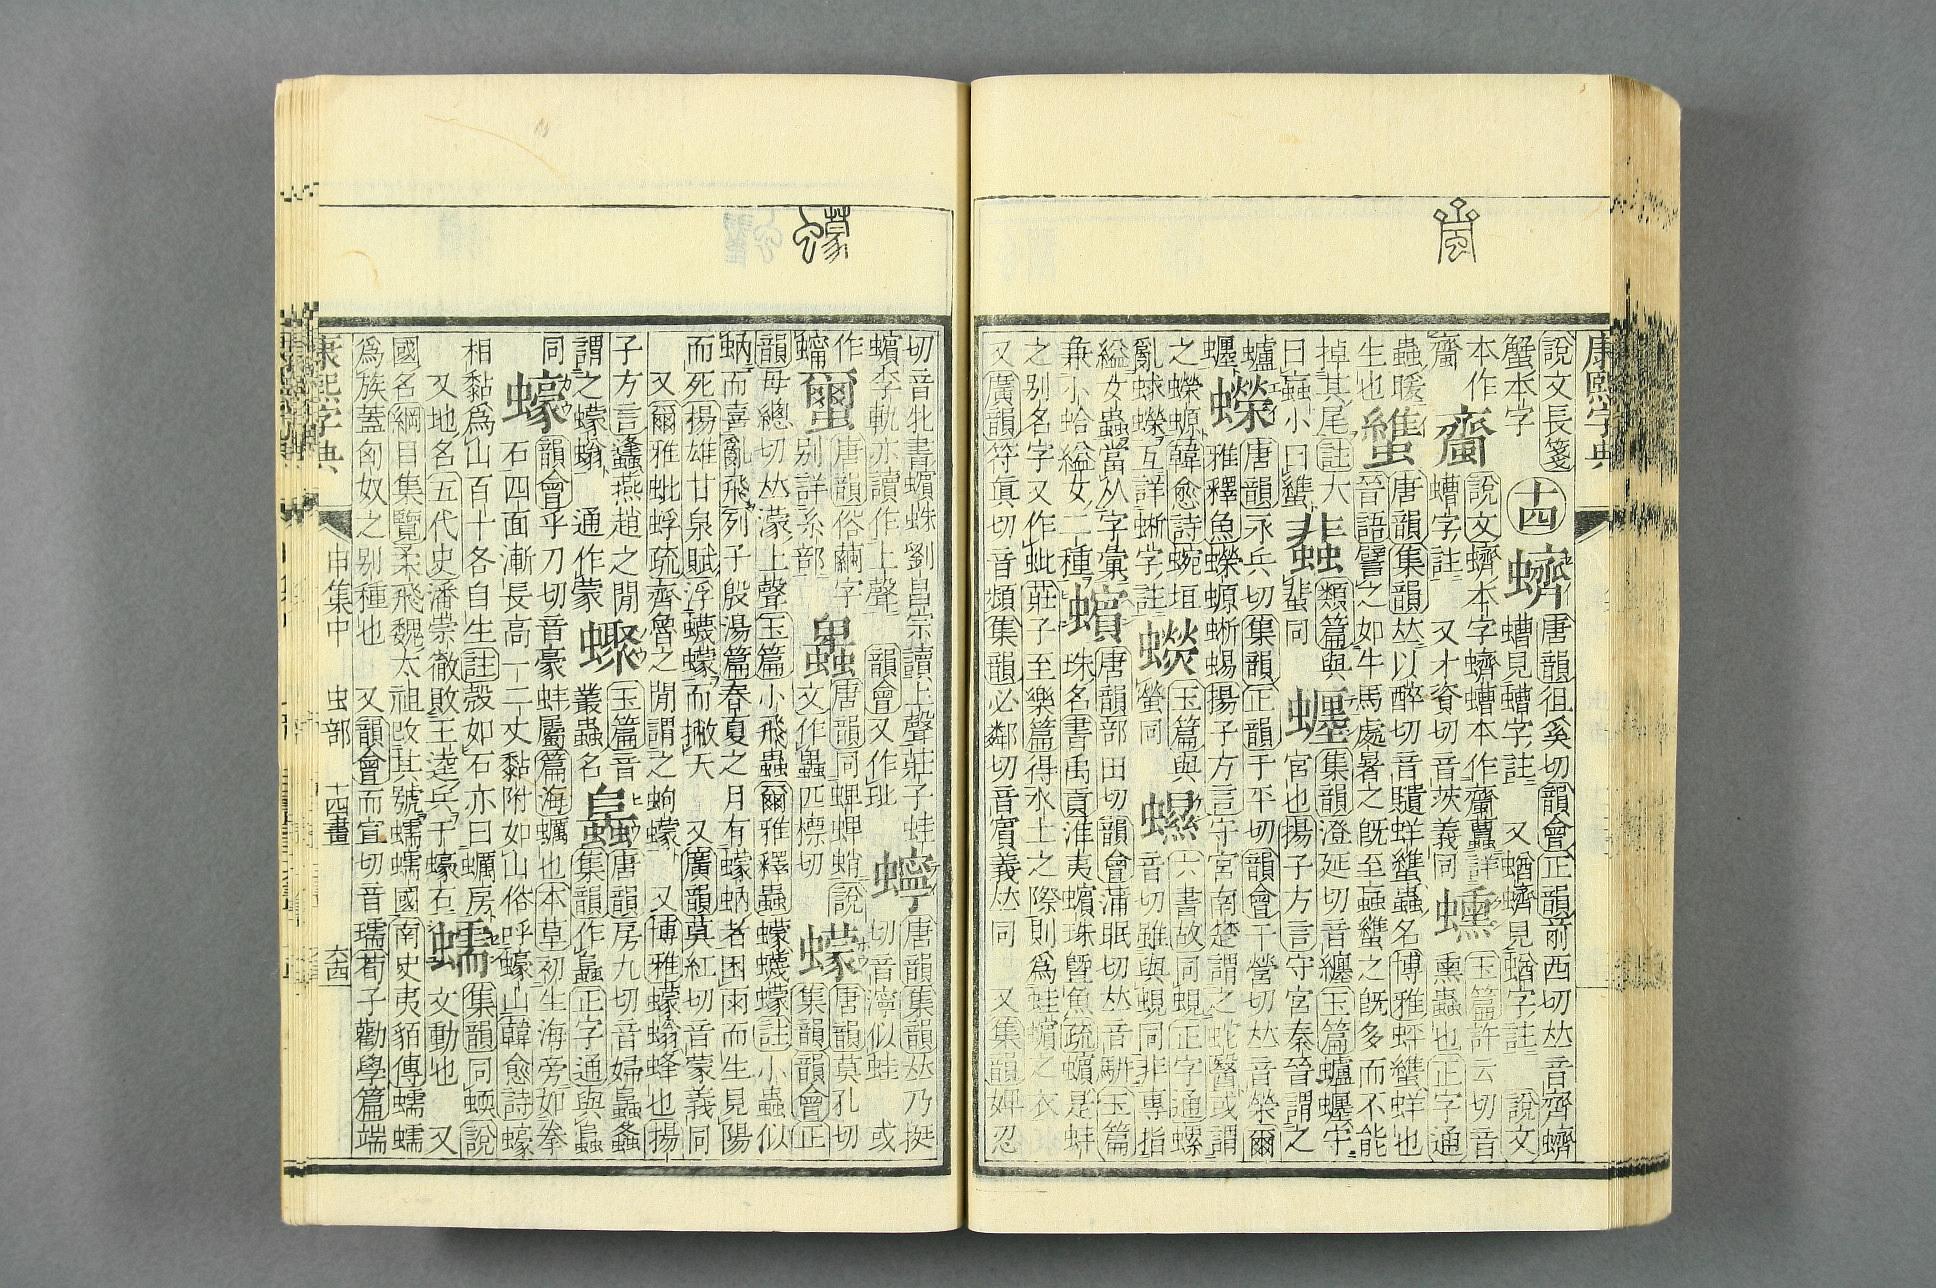 康熙字典
說文長箋蟹本字 十四 蠐 唐韻徂奚切韻會正韻前西切𠀤音齊蠐螬見螬字註 又蝤蠐見蝤字註 說文
本作 說文蠐本字蠐螬本作 詳螬字註 又才資切音茨義同 玉篇許云切音熏蟲也正字通
蟲曖生也 唐韻集韻𠀤以醉切 晉語譬之如牛馬處暑之旣至䖟 之旣多而不能
掉其尾註大曰䖟小曰 類篇與蜚同 集韻澄延切音纏玉篇蠦 守宮也揚子方言守宮秦晉謂之
蠦 蠑 唐韻永兵切集韻正韻于平切韻會于營切𠀤音榮爾雅釋魚蠑螈蜥蜴揚子方言守宮南楚謂之蛇醫或謂
之蠑螈韓愈詩蜿垣亂蛷蠑互詳蜥字註 玉篇與螢同 六書故同蜆正字通螺音切雖與蜆同非專指
縊女蟲當从字彙兼小蛤縊女二種 蠙 唐韻部田切韻會蒲眠切𠀤音駢玉篇珠名書禹貢淮夷蠙珠曁魚疏蠙是蚌
之别名字又作蚍莊子至樂篇得水土之際則爲蛙蠙之衣 又廣韻符眞切音頻集韻必鄰切音賓義𠀤同 又集韻婢忍
切音牝書蠙蛛劉昌宗讀上聲莊子蛙蠙李軌亦讀作上聲 韻會又作玭 唐韻集韻𠀤乃挺切音濘似蛙 或
作 唐韻俗繭字别詳糸部 唐韻同蜱蜱蛸說文作 匹標切 蠓 唐韻莫孔切集韻韻會正
韻母總切𠀤濛上聲玉篇小飛蟲爾雅釋蟲蠓蠛蠓註小蟲似蚋而喜亂飛列子殷湯篇春夏之月有蠓蚋者因雨而生見陽
而死揚雄甘泉賦浮蠛蠓而撇天 又廣韻莫紅切音蒙義同 又爾雅蚍蜉疏齊魯之閒謂之蚼蠓 又博雅蠓螉蜂也揚
子方言蠭燕趙之閒謂之蠓螉 通作蒙 玉篇音叢蟲名 唐韻房九切音婦 螽集韻作 正字通與
同 蠔 韻會乎刀切音豪蚌屬篇海蠣也本草初生海旁如拳石四面漸長高一二丈黏附如山俗呼蠔山韓愈詩蠔
相黏爲山百十各自生註殼如石亦曰蠣房 又地名五代史潘崇徹敗王逵兵于蠔石 蠕 集韻同蝡說文動也 又
國名綱目集覽柔飛魏太祖攺其號蠕蠕國南史夷貊傳蠕蠕爲族蓋匈奴之别種也 又韻會而宣切音瓀荀子勸學篇端
康熙字典 申集中 虫部 十四畫 六四